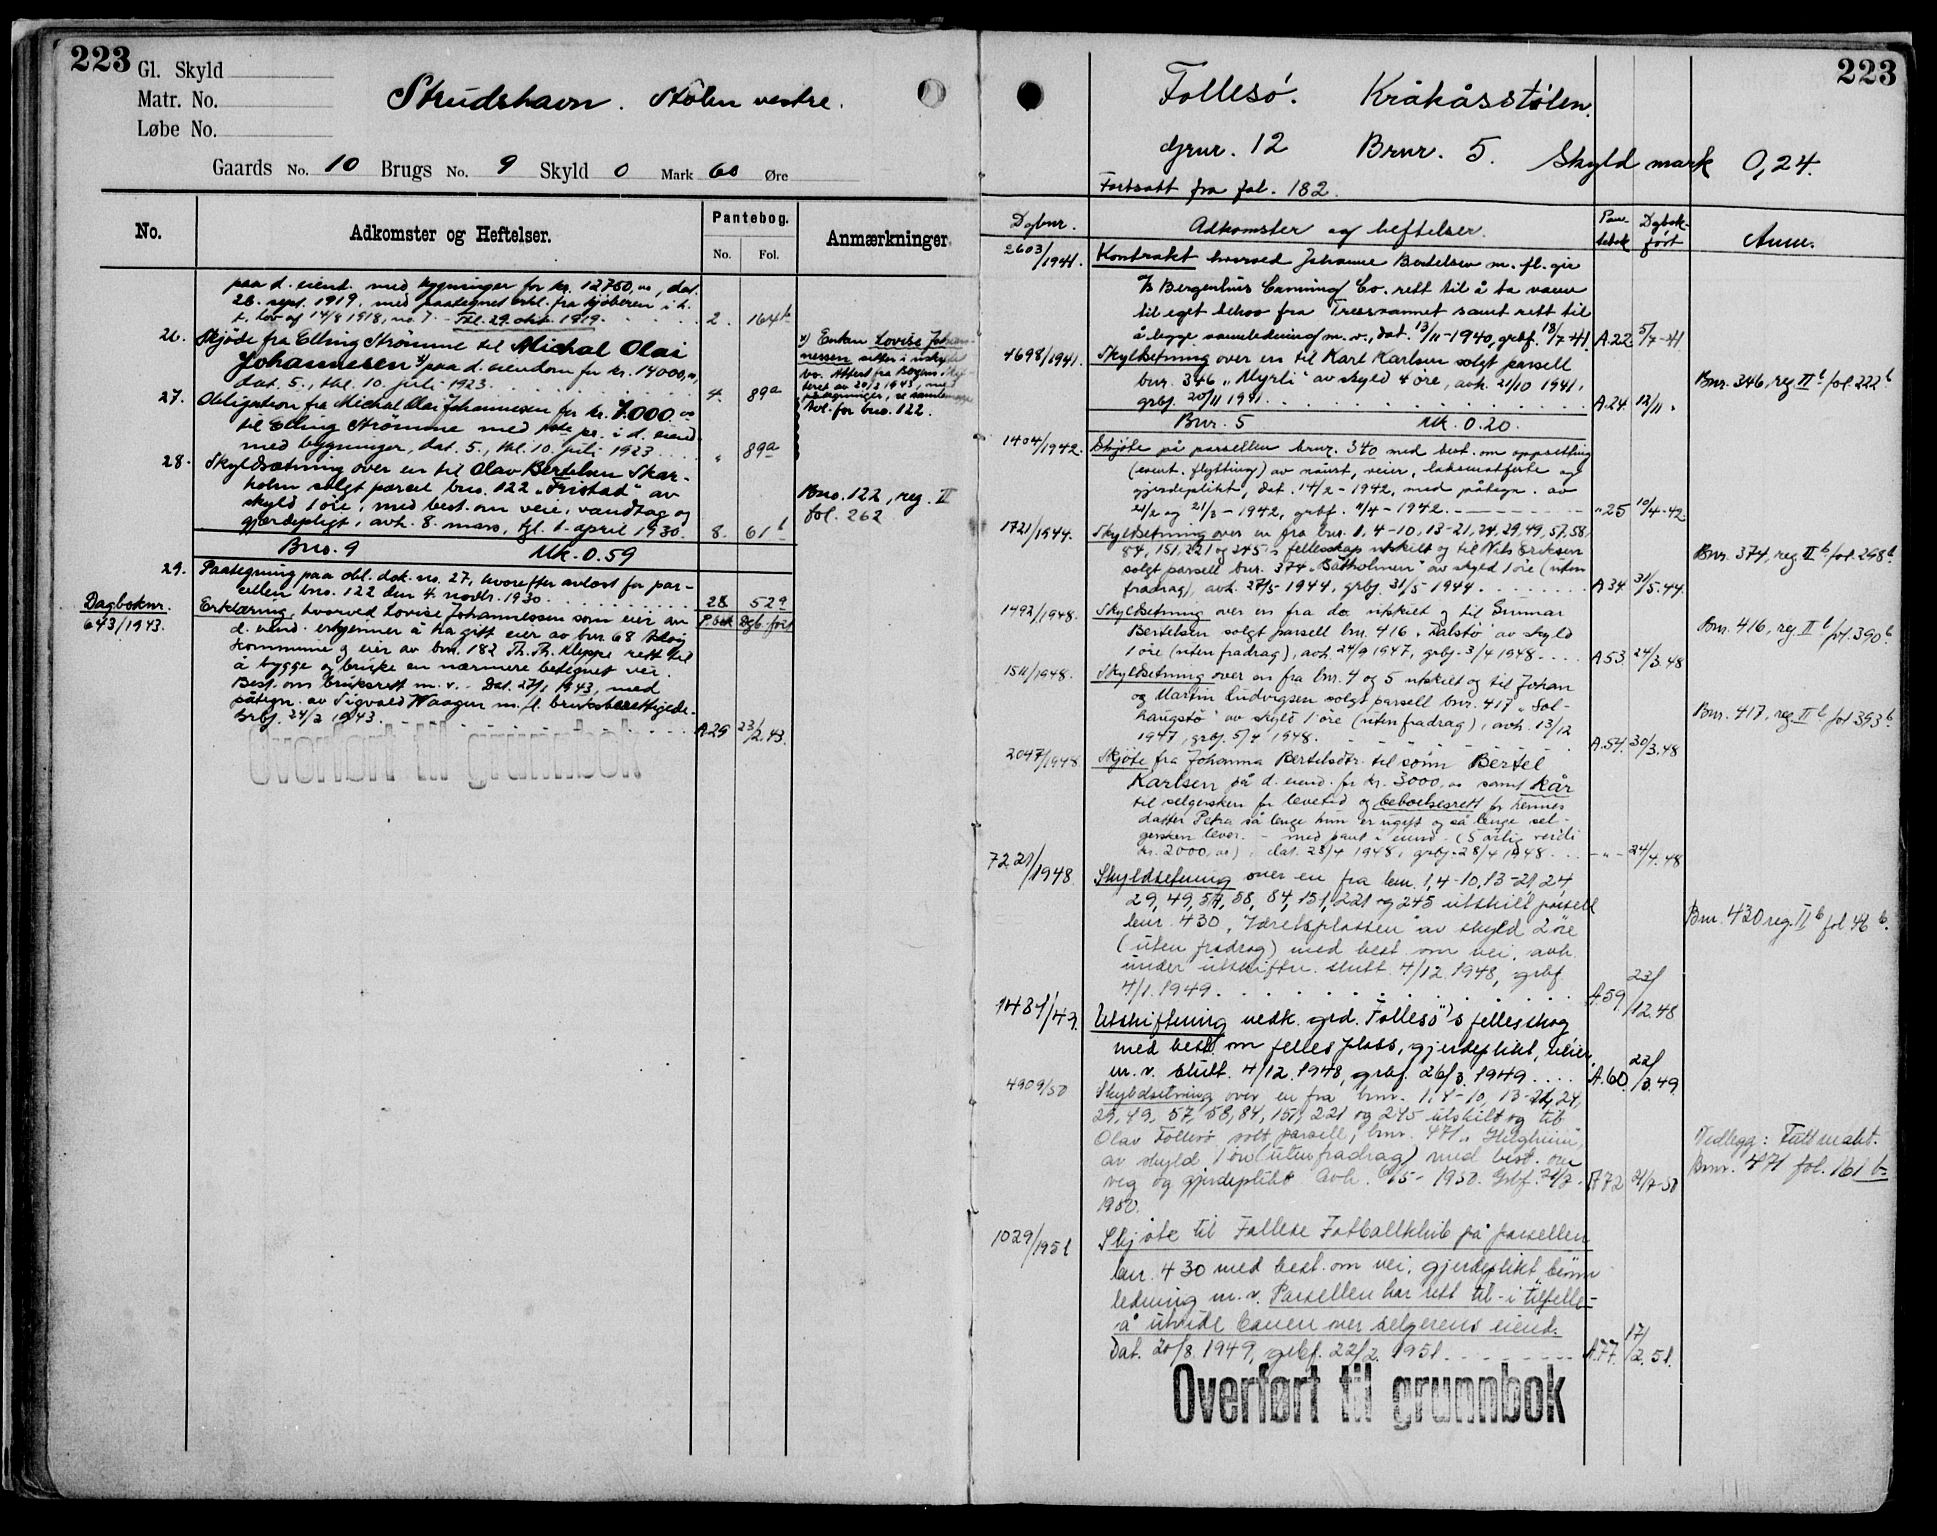 223
Gl. Skyld
Matr. No.
Løbe No.
Strudshavn. Stølen vestre.
Gaards No. 10 Brugs No. 9 Skyld 0 Mark 60 Øre
No. Adkomster og Heftelser. Pantebog. No. Fol. Anmærkninger
paa d. eiend. med bygninger for kr. 12750,00, dat.
26. sept. 1919, med paategnet erkl. fra kjøberen i h.
t. lov af 14/8 1918, no. 7. - Tbl. 29. okt. 1919. 2. 164b
26. Skjøde fra Elling Strømme til Michal Olai
Johannesen x) paa d. eiendom for kr. 14000,00,
dat. 5., tbl. 10. juli 1923. 4. 89a
x) Enken Lovise Johan-
nessen sitter i uskiftet
bo. Attest fra
av 20/2 1943, med
påtegninger,
fol. for bno. 122.
27. Obligation fra Michal Olai Johannesen for kr. 7.000.00
til Elling Strømme med pr. i d. eiend.
med bygninger, dat. 5., tbl. 10. juli 1923 „ 89a
28. Skyldsætning over en til Olav Bertelsen Skar-
holm solgt parcel bno. 122 „Fristad" av
skyld 1 øre, med best. om veie, vandtag og
gjærdepligt, avh. 8. mars, tgl. 1. april 1930. 8. 61b
Bno. 122, reg. II
fol. 262
Bno. 9 Mk. 0.59
29. Paategning paa obl. dok. no. 27, hvorefter avløst for par-
cellen bno. 122 den 4. novbr. 1930. 28 529
Dagboknr. P.bok Dgb. ført
643/1943. Erklæring, hvorved Lovise Johannessen som eier av
d. eiend. erkjenner å ha gitt eier av bnr. 68 Askøy
kommune og eier av bnr. 182 Th. Th. Kleppe rett til
å bygge og bruke en nærmere betegnet vei.
Best. om bruksrett m. v. - Dat. 27/1 1943, med
påtegn. av Sigvald Waagen m. fl. bruksberettigede.
Grbf. 24/2 1943. A.29 23/2.43.
Overført til grunnbok
223
Follesø. Kråkåsstølen.
Grnr. 12 Brnr. 5. Skyld mark 0,24.
Fortsatt fra fol. 182.
Dgbnr. Adkomster og heftelser. Pantebok Dgbokført Anm.
2603/1941. Kontrakt hvorved Johanne Bertelsen m. fl. gir
A/S Bergenhus Canning Co. rett til å ta vann
til eget behov fra Tresvannet samt rett til
å legge vannledning m. v., dat. 13/11-1940, grbf. 18/7-41. A.22 5/7-41
4698/1941. Skyldsetning over en til Karl Karlsen solgt parsell
bnr. 346 „Myrli" av skyld 4 øre, avh. 21/10 1941,
grbf. 20/11 1941. A.24. 12/11.
Bnr. 346, reg. IIb fol. 222b
Bnr. 5 Mk. 0.20.
1404/1942. Skjøte på parsellen bnr. 340 med best. om oppsetting
(event. flytting) av naust, veier, laksenotfeste og
gjerdeplikt, dat. 14/2-1942, med påtegn. av
21/2 og 21/3-1942, grbf. 1/4-1942. „ 25 10/4-42
1721/1944. Skyldsetning over en fra bnr. 1, 4-10, 13-21, 24, 29, 49, 57, 58,
84, 151, 221 og 245 i fellesskap utskilt og til Nils Eriksen
solgt parsell bnr. 374 „Båtholmen" av skyld 1 øre (uten
fradrag), avh. 27/5-1944, grbf. 31/5 1944. A 34. 31/5-44.
Bnr. 374, reg. IIb fol. 298b
1492/1948. Skyldsetning over en fra do. utskilt og til Gunnar
Bertelsen solgt parsell bnr. 416 „Dalstø" av skyld
1 øre (uten fradrag), avh. 24/9 1947, grbf. 3/4 1948. A.53. 24/3.48
Bnr. 416, reg. IIb fol. 390b
1511/1948. Skyldsetning over en fra bnr. 4 og 5 utskilt og til Johan
og Martin Ludvigsen solgt parsell bnr. 417 „Sol-
haugstø" av skyld 1 øre (uten fradrag), avh. 13/12
1947, grbf. 5/4 1948. A.54. 30/3.48
Bnr. 417, reg. IIb fol. 393b
2047/1948 Skjøte fra Johanna Bertelsdtr. til sønn Bertel
Karlsen på d. eiend. for kr. 3000,00 samt kår
til selgersken for levetid og beboelsesrett for hennes
datter Petra så lenge hun er ugift og så lenge sel-
gersken lever. - med pant i eiend. - (5 årlig verdi
kr. 2000,00), dat. 23/4 1948, grbf. 28/4 1948. - „ - 24/4.48
7221/1948. Skyldsetning over en fra bnr. 1, 4-10, 13-21, 24,
29, 49, 57, 58, 84, 151, 221 og 245 utskilt parsell
bnr. 430, „Idrettsplassen" av skyld 2 øre
(uten fradrag) med best. om vei, avh.
under utskiftn. slutt. 4/12 1948, grbf.
4/1 1949. A.59 23/12.48
Bnr. 430 reg. IIb fol 46 b.
1481/49. Utskiftning vedk. grd. Follesø's fellesskog
med best. om felles plass, gjerdeplikt, veier
m. v. Slutt. 4/12.1948, grbf. 26/3.1949. A.60 22/3.49.
4909/50 Skyldsetning over en fra bnr. 1, 4-10, 13-21, 24,
29, 49, 57, 58, 84, 151, 221 og 245 utskilt og til
Olav Follesø solt parsell, bnr. 471 av skyld 1 øre (uten fradrag) med best. om
veg og gjerdeplikt. Avh. 1950. Grbf. 21/7-
1950. A 72 21/7-50
Vedlegg: Fullmakt.
Bnr. 471 fol. 161 b
1029/1951 Skjøte til Follese Fotballklub på parsellen
bnr. 430 med best. om vei, gjerdeplikt,
ledning m. v. Parsellen har rett til - i tilfelle -
å utvide banen over selgerens eiend.
Dat. 20/8.1949, grbf. 22/2.1951. A.77. 17/2.51.
Overført til grunnbok